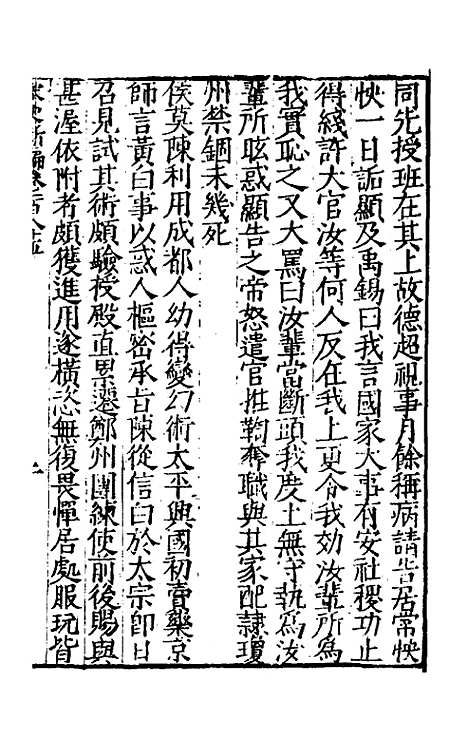 同先授班在其上故德超視事月餘稱病請告居常怏
怏一日詬顯及禹錫曰我言國家大事有安社稷功止
得綫許大官汝等何人反在我上更令我効汝輩所為
我實恥之又大罵曰汝輩當斷頭我度上無守執為汝
輩所眩惑顯告之帝怒遣官推鞫奪職與其家配隷瓊
州禁錮未幾死
侯莫陳利用成都人幼得變幻術太平興國初賣藥京
師言黃白事以惑人樞密承旨陳從信白於太宗卽日
召見試其術頗驗授殿直累遷鄭州團練使前後賜與
甚渥依附者頗獲進用遂橫恣無復畏憚居處服玩皆
宋史新編卷一百八十五